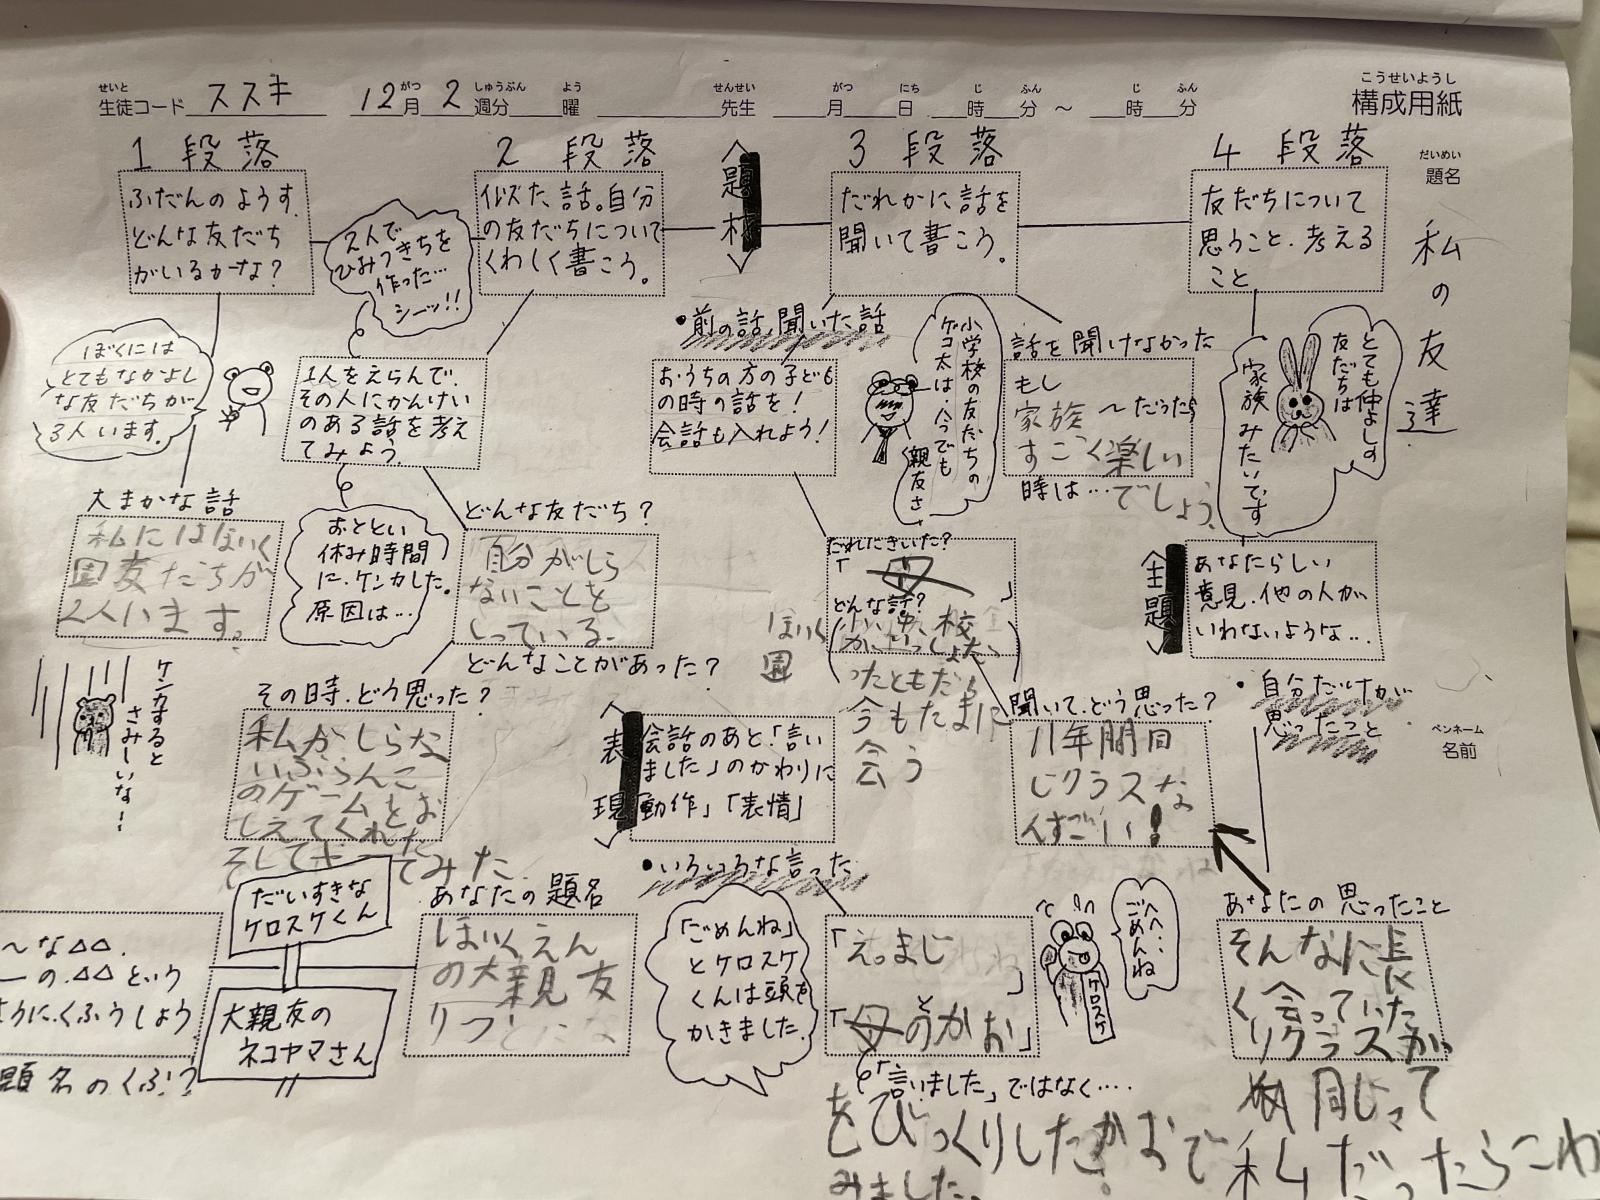 せいと
生徒コード ススキ 12月 2週分 曜 先生 月 日 時 分 ～ 時 分
がつ しゅうぶん よう せんせい がつ にち じ ふん じ ふん
こうせいようし
構成用紙
だいめい
題名
私の友達
ペンネーム
名前
1 段落
ふだんのようす、
どんな友だち
がいるかな？
ぼくには
とてもなかよし
な友だちが
3人います。
大まかな話
私にはほいく
園友だちが
2人います。
ケンカすると
さみしいな！
2 段落
似ズた話。自分
の友だちについて
くわしく書こう。
2人で
ひみつきちを
作った…
シーッ!!
1人をえらんで、
その人にかんけい
のある話を考え
てみよう。
おととい
休み時間
に、ケンカした。
原因は…
どんな友だち？
自分がしら
ないことを
しっている。
どんなことがあった？
その時、どう思った？
私がしらな
いぶらんこ
のゲームをお
しえてくれた
てみた
〈題材〉
3 段落
だれかに話を
聞いて書こう。
・前の話、聞いた話
おうちの方の子ども
の時の話を！
会話も入れよう！
小学校の友だちの
ゲコ太は、今でも
親友さ
話を聞けなかった
もし
家族～だったら
すごく楽しい
時は…でしょう。
だれにきいた？
「母」
どんな話？
ほいく
園
校
ったともだち
今もたまに
会う
聞いて、どう思った？
11年間同
じクラスな
んすごい！
〈表現〉
会話のあと、「言い
ました」のかわりに
「動作」「表情」
・いろいろな言った
「ごめんね」
とケロスケ
くんは頭を
かきました。
「えっまじ」
「母のかお」
と
「言いました」ではなく‥‥
をびっくりしたかおで
みました。
へへ…
ごめんね
ケロスケ
4 段落
友だちについて
思うこと、考える
こと
とても仲よしの
友だちは
家族みたいです
〈主題〉
あなたらしい
意見、他の人が
いわないような…
・自分だけが
思ったこと
あなたの思ったこと
そんなに長
く会っていた
りクラスが
同じって
私だったらこわ
あなたの題名
ほいくえん
の大親友
りつ
だいすきな
ケロスケくん
大親友の
ネコヤマさん
～な△△、
ーの、△△という
ように、くふうしよう
題名のくふう